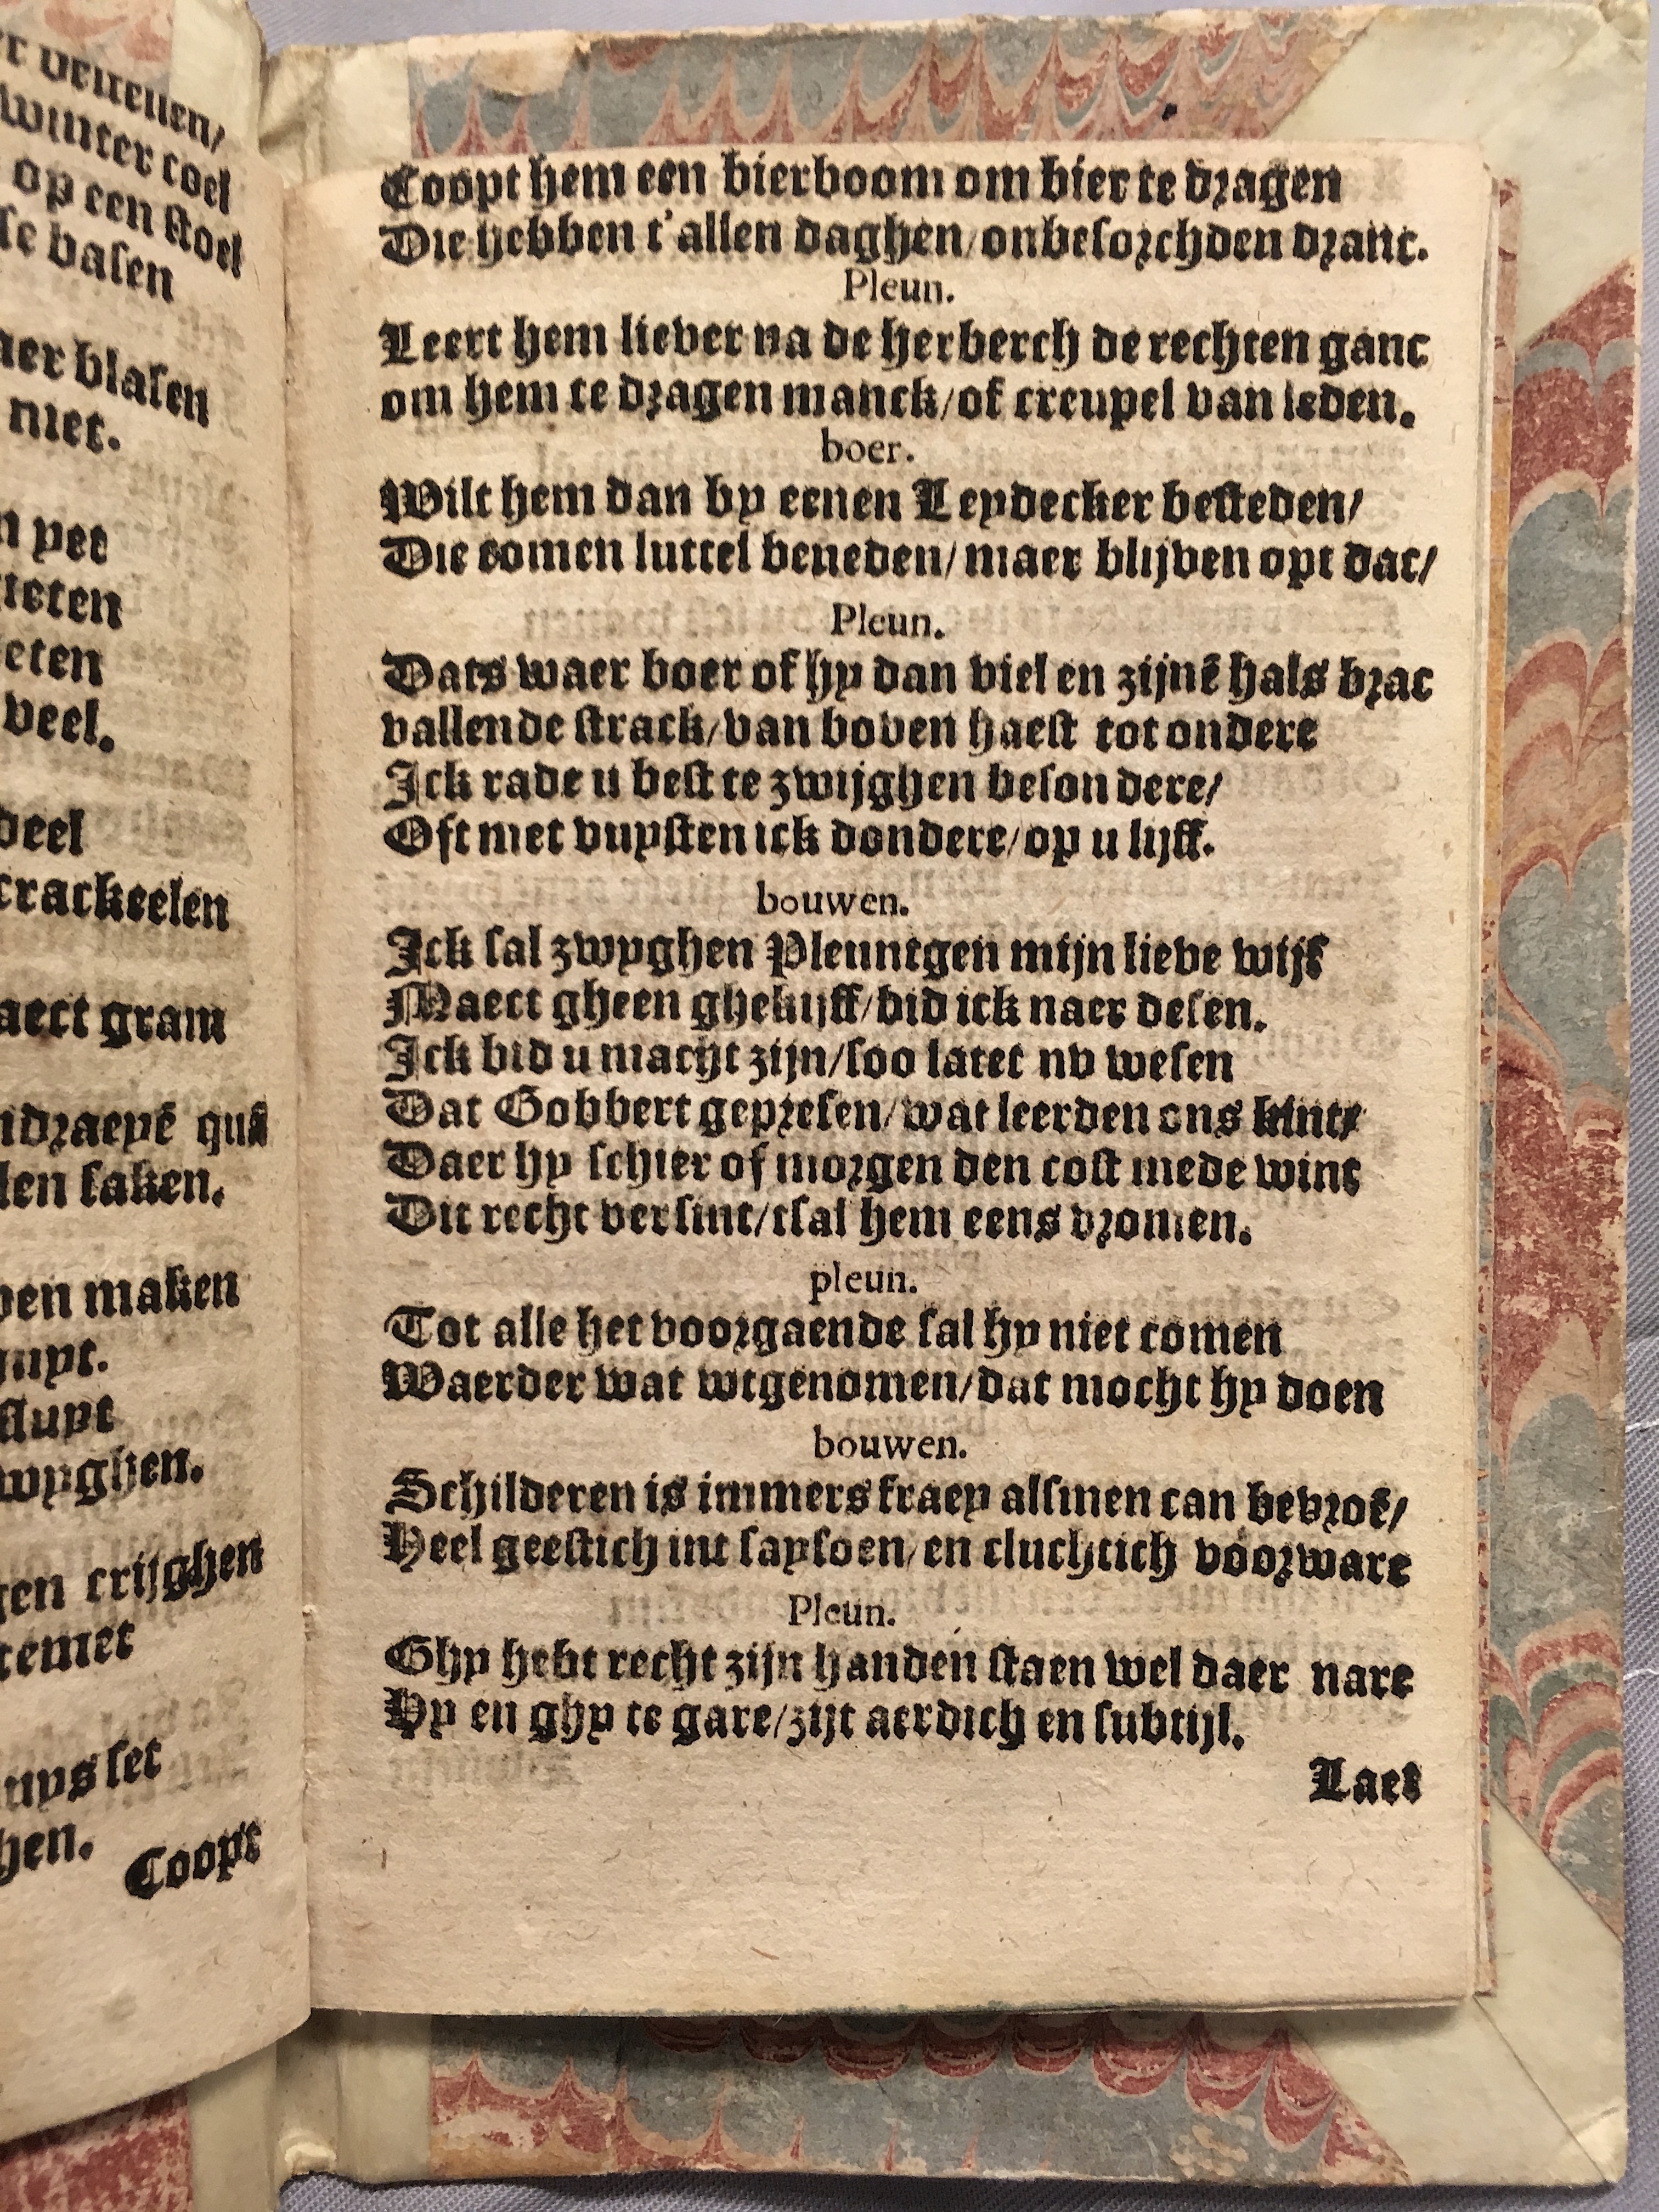 winter coel
op een stoel
se vasen
blasen
niet.
n yet
eten
veel.
deel
crackeelen
aect gram
len saken.
maken
crijghen
temet
set
Coopt
Coopt hem een bierboom om bier te dragen
Die hebben t'allen daghen/onbesorchden dranc.
Pleun.
Leert hem liever na de herberch de rechten ganc
om hem te dragen manck/of creupel van leden.
boer.
Wilt hem dan by eenen Leydecker besteden/
Die comen luttel beneden/maer blijven opt dac/
Pleun.
Dats waer boer of hy dan viel en zijnē hals brac
vallende strack/van boven haest tot ondere
Ick rade u best te zwijghen besondere/
Oft met vuysten ick dondere/op u lijff.
bouwen.
Ick sal zwyghen Pleuntgen mijn lieve wijf
Maect gheen ghekijff/bid ick naer desen.
Ick bid u macht zijn/soo latet nv wesen
Dat Gobbert gepresen/wat leerden ons kint/
Daer hy schier of morgen den cost mede wint
Dit recht versint/tsal hem eens vromen.
pleun.
Tot alle het voorgaende sal hy niet comen
Waerder wat wtgenomen/dat mocht hy doen
bouwen.
Schilderen is immers fraey alsmen can bevroē/
Heel geestich int saysoen/en cluchtich voorware
Pleun.
Ghy hebt recht zijn handen staen wel daer nare
Hy en ghy te gare/zijt aerdich en subtijl.
Laet